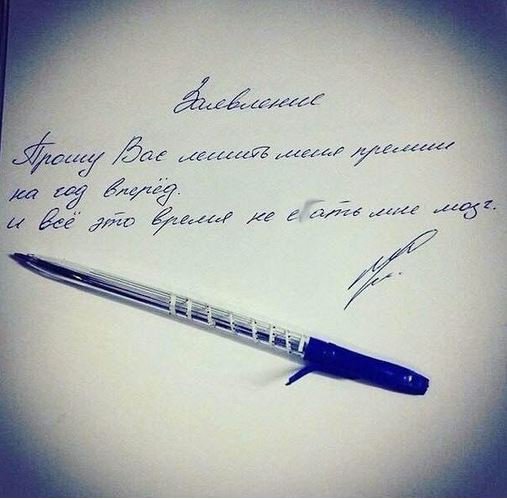 Заявление
Прошу Вас лишить меня премии
на год вперёд.
и всё это время не е ать мне мозг.